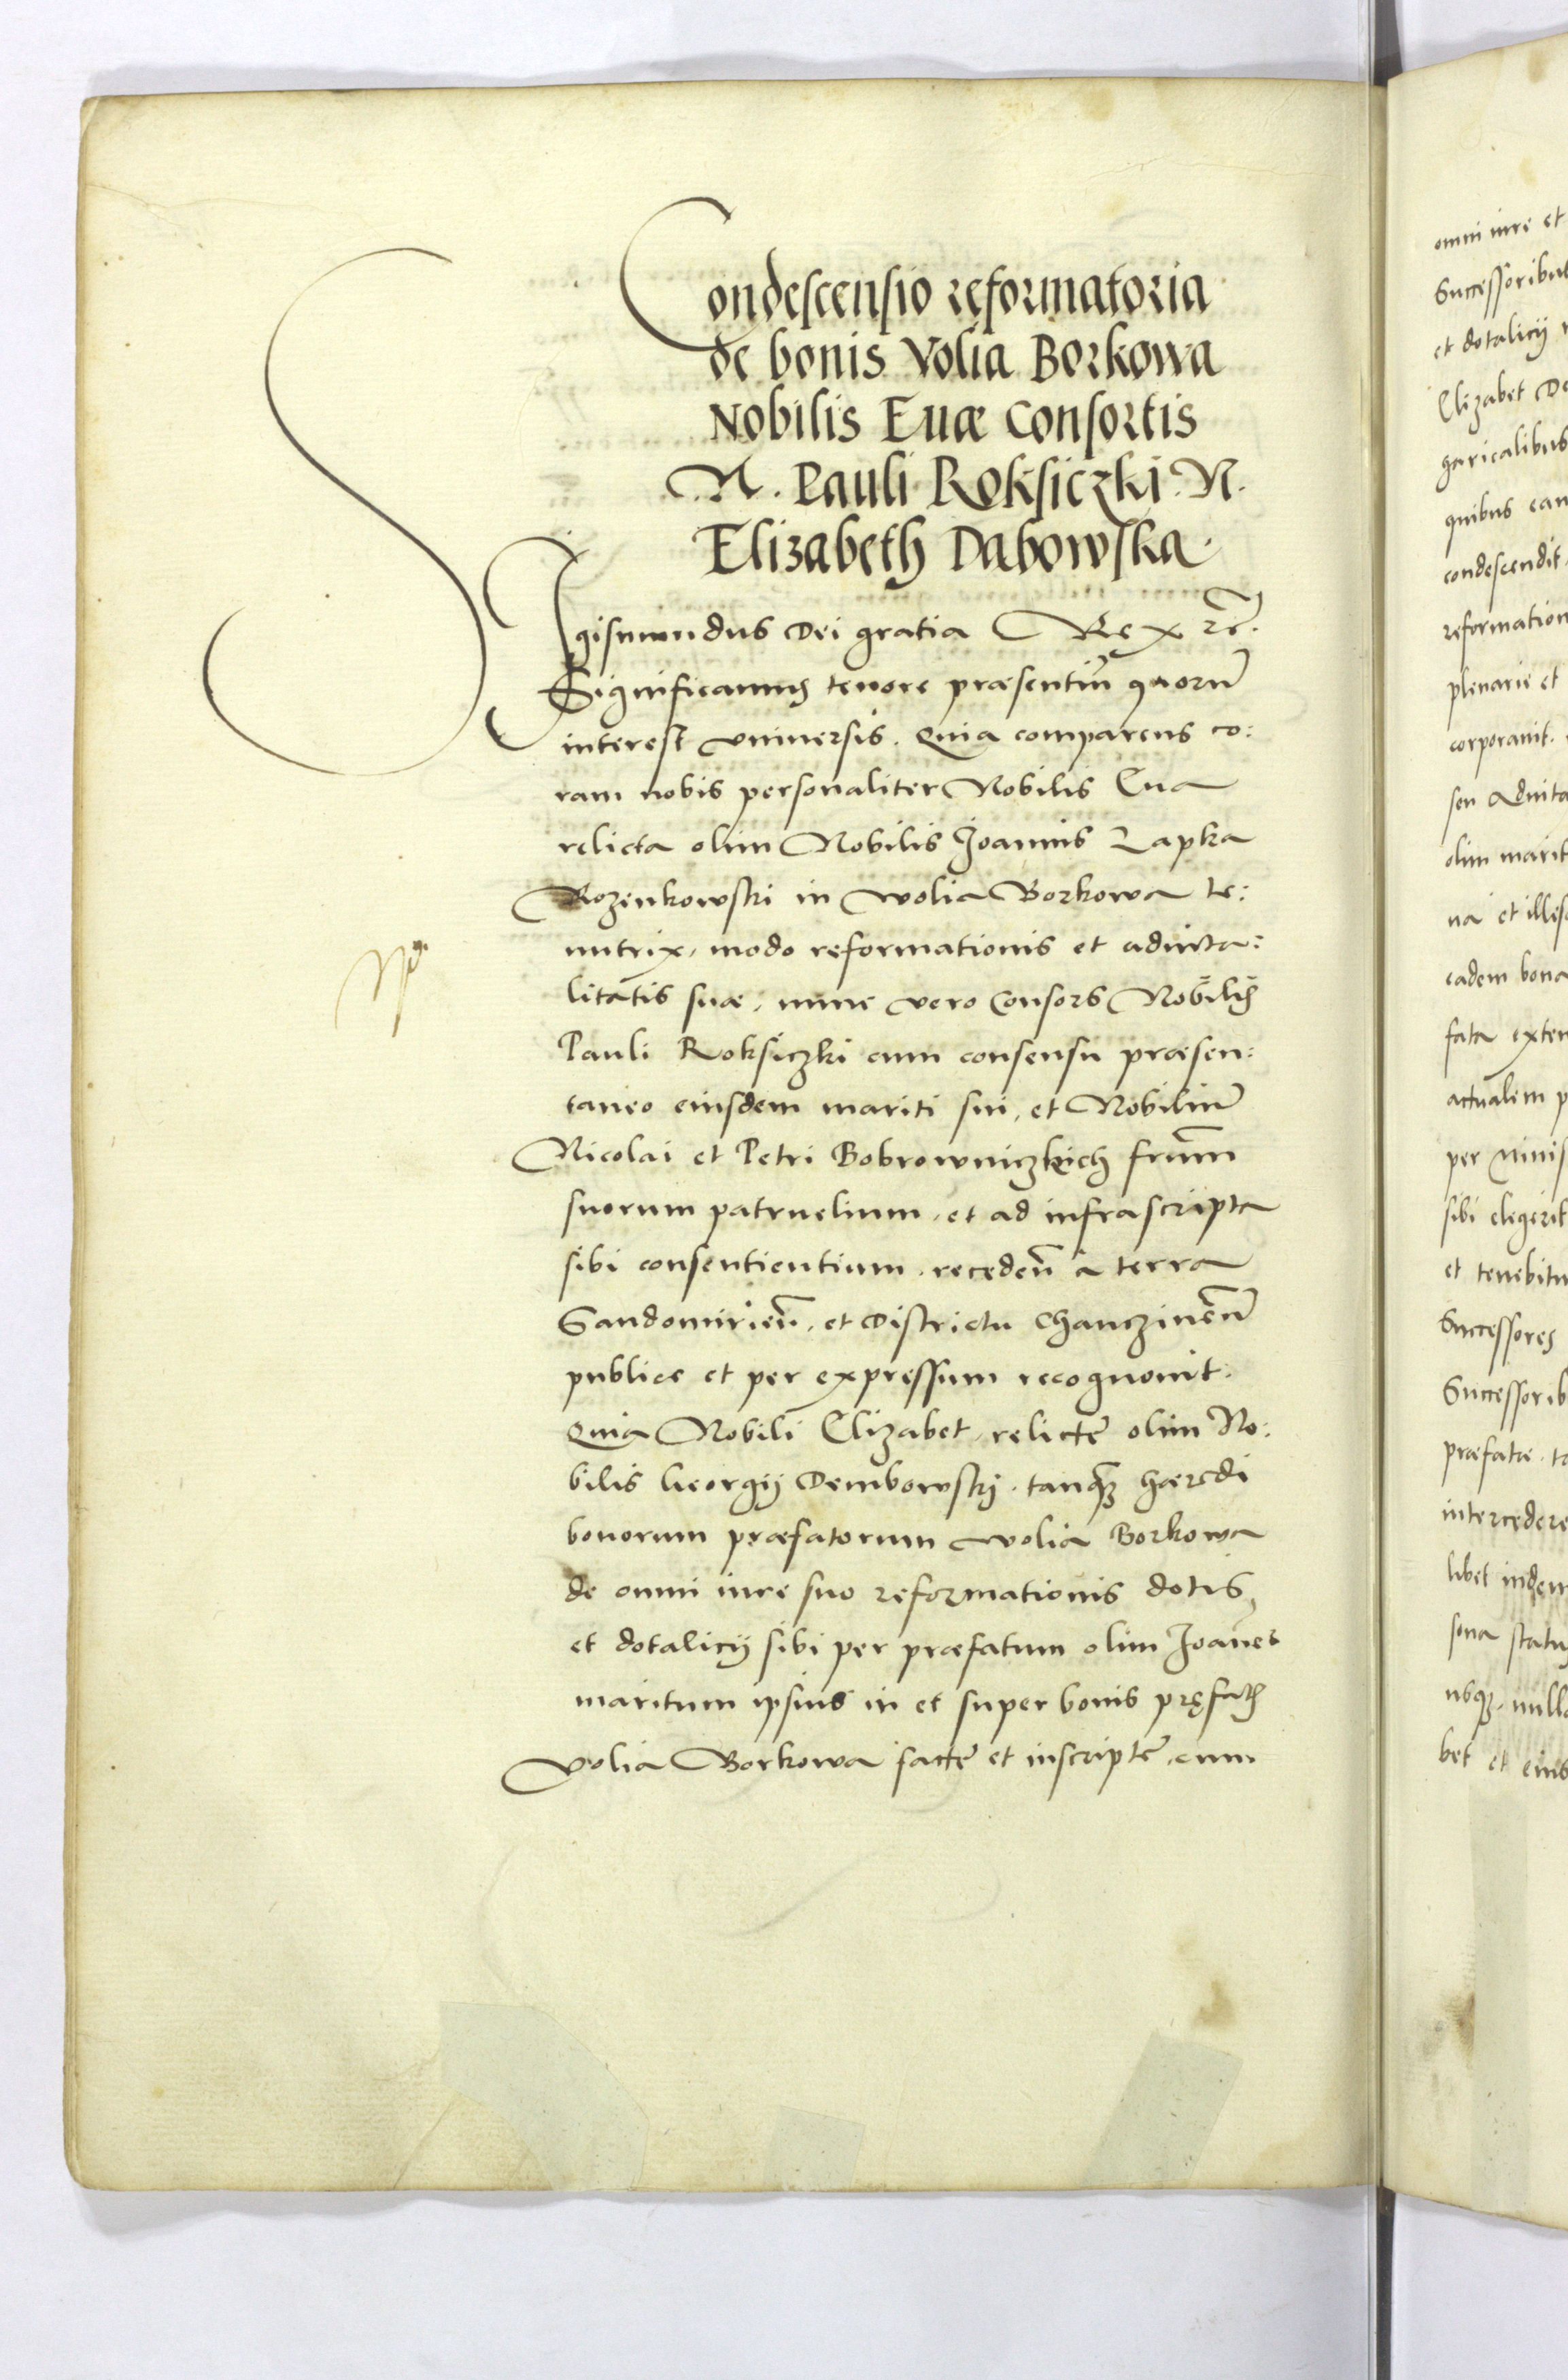 Condescensio reformatoria
de bonis Volia Borkowa
Nobilis Euæ Consortis
N. Pauli Roksiczki. N.
Elizabeth Dabowska.
Sigismundus Dei gratia Rex etc̃.
Significamus tenore præsentiũ quorũ
interest vniuersis. Quia comparens co:
ram nobis personaliter Nobilis Eua
relicta olim Nobilis Joannis Lapka
Rozenkowski in Wolia Borkowa te:
nutrix, modo reformationis et aduita:
litatis suæ, nunc vero Consors Nobilis
Pauli Roksiczki cum consensu præsen:
taneo eiusdem mariti sui, et Nobiliũ
Nicolai et Petri Bobrowniczkich frũm
suorum patruelium, et ad infrascripta
sibi consentientium, receden̄ a terra
Sandomirien̄, et Districtu Chanczinen̄
publice et per expressum recognouit.
Quia Nobili Elizabet, relictæ olim No:
bilis Georgij Dembowskj, tanqȝ hæredi
bonorum præfatorum Wolia Borkowa
de omni iure suo reformationis dotis
et dotalicij sibi per præfatum olim Joanẽ
maritum ipsius in et super bonis pręfatis
Volia Borkowa factę et inscriptę, cum
omni iure et
Successoribus
et dotalicij
Elizabet De
garicalibus
quibus ean
condescendit.
reformation
plenarie et
corporauit.
seu Aduita
olim marit
na et illes
eadem bona
fata exten
actualem p
per Minis
sibi elegerit
et tenebitu
Successores
Successorib
præfatæ. ta
intercedere
libet indem
sona statu
usqȝ. nulla
bet et eius